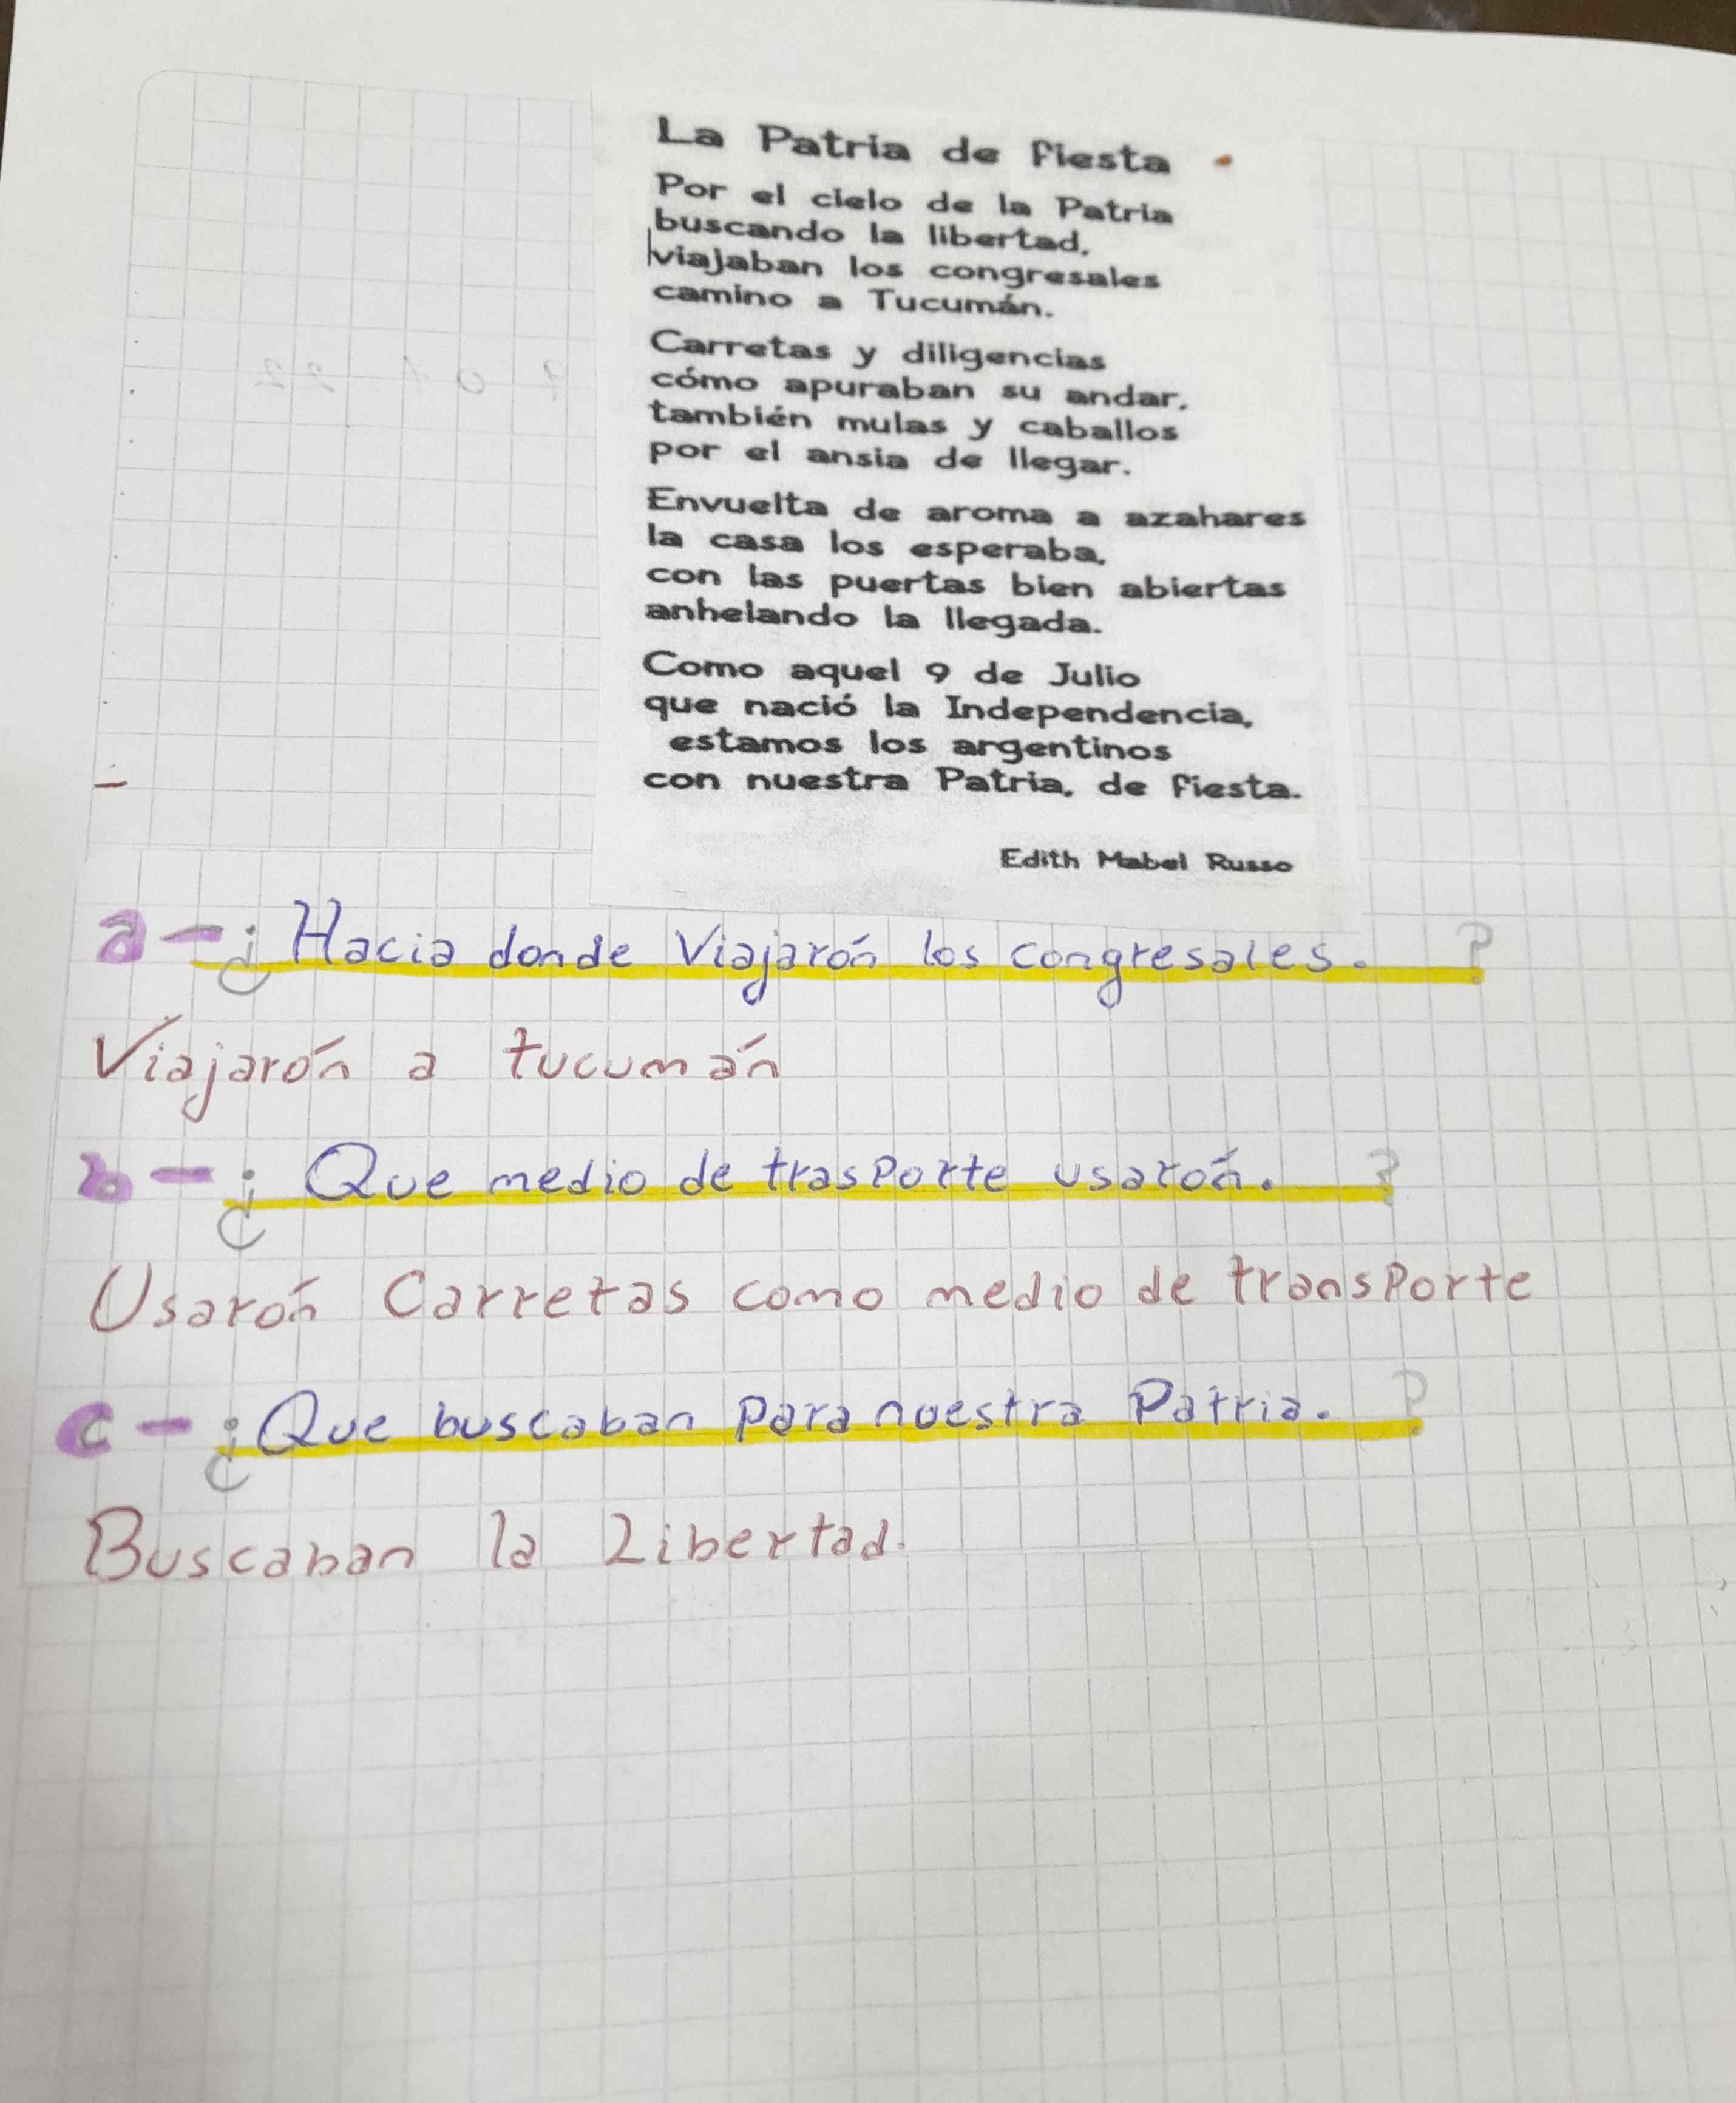 La Patria de fiesta
Por el cielo de la Patria
buscando la libertad,
viajaban los congresales
camino a Tucumán.
Carretas y diligencias
cómo apuraban su andar,
también mulas y caballos
por el ansia de llegar.
Envuelta de aroma a azahares
la casa los esperaba,
con las puertas bien abiertas
anhelando la llegada.
Como aquel 9 de Julio
que nació la Independencia,
estamos los argentinos
con nuestra Patria, de fiesta.
Edith Mabel Russo
a-¿Hacia donde Viajarón los congresales. ?
Viajarón a tucumán
b-¿Que medio de trasPorte usarón. ?
Usarón Carretas como medio de transPorte
c-¿Que buscaban para nuestra Patria. ?
Buscaban la Libertad.